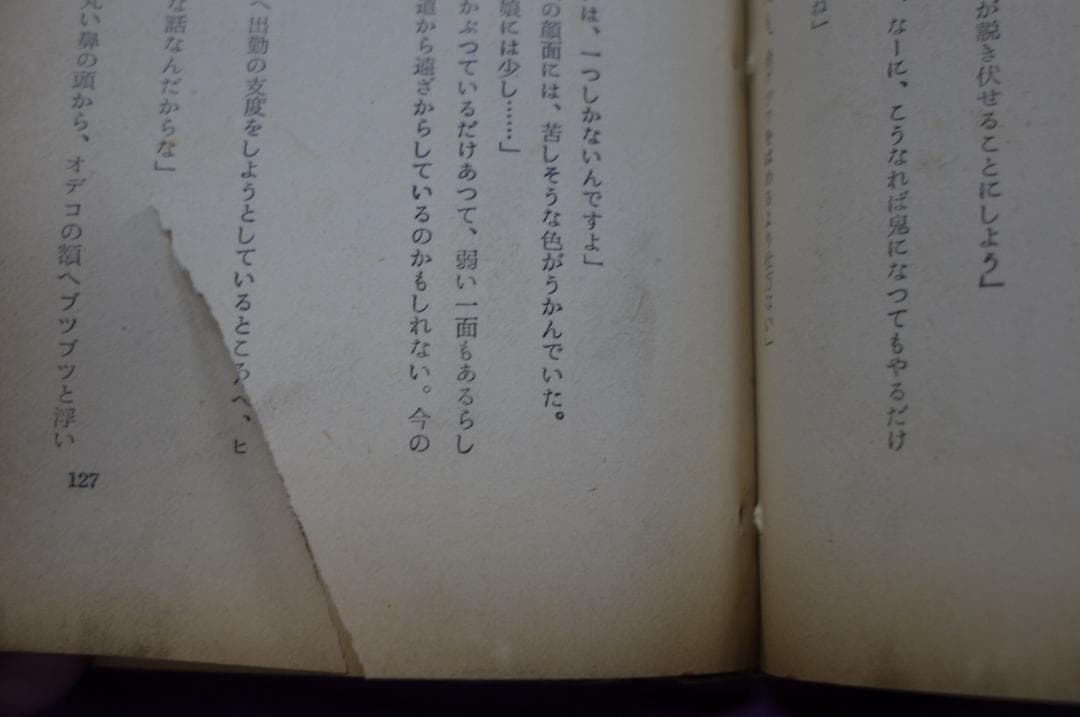 が説き伏せることにしよう」
、なーに、こうなれば鬼になつてもやるだけ
ね」
は、一つしかないんですよ」
の顔面には、苦しそうな色がうかんでいた。
娘には少し……」
かぶつているだけあつて、弱い一面もあるらし
道から遠ざからしているのかもしれない。今の
へ出勤の支度をしようとしているところへ、ヒ
な話なんだからな」
丸い鼻の頭から、オデコの額へブツブツと浮い
127